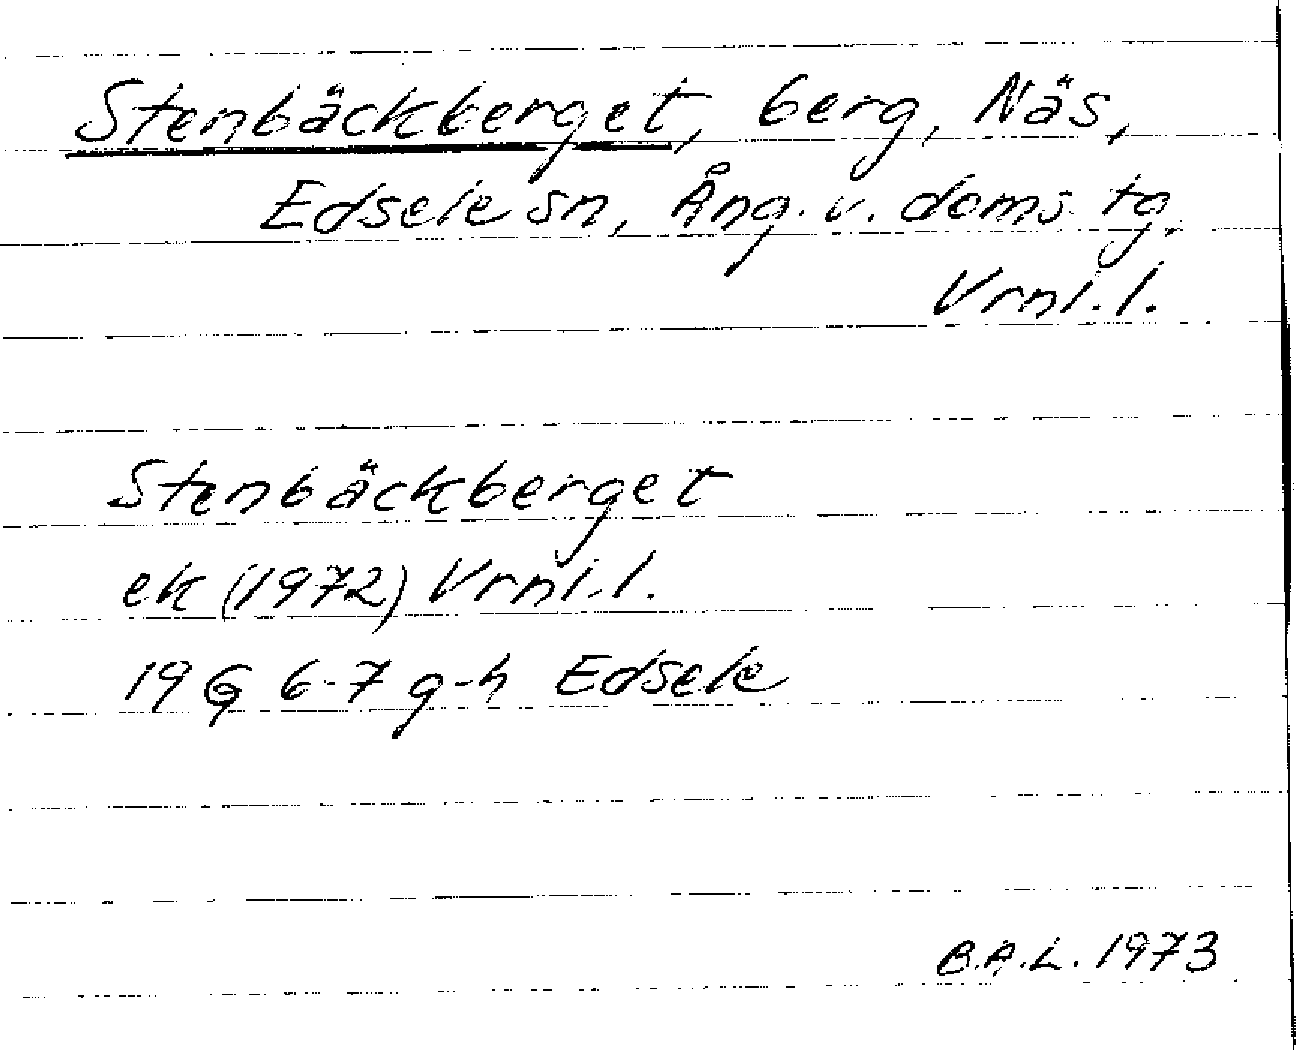 Stenbäckberget, berg, Näs,
Edsele sn, Ång. v. doms. tg.
Vrnl.l.
Stenbäckberget
ek (1972) Vrnl.l.
19 G 6-7 g-h Edsele
B.A.L. 1973